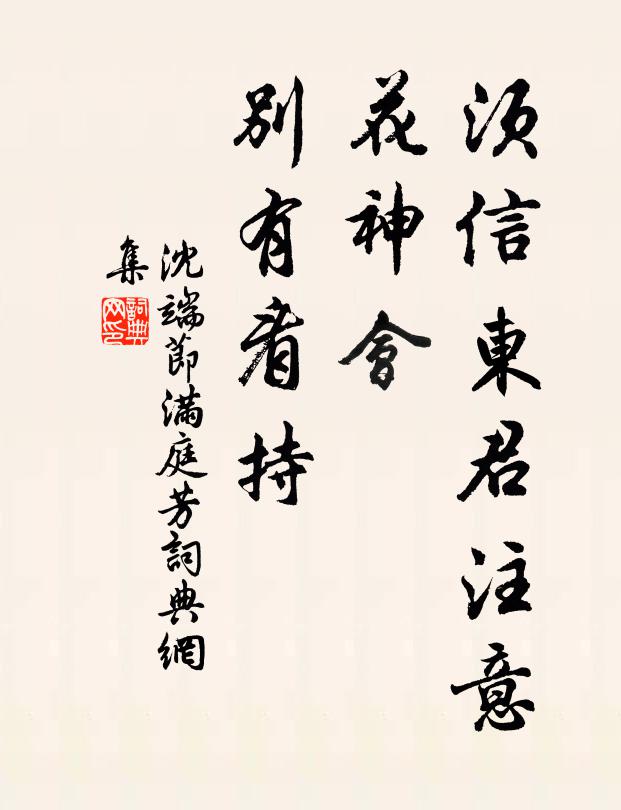 須信東君注意
花神會
別有看持
沈端節滿庭芳詞典網
集
詞典
网印